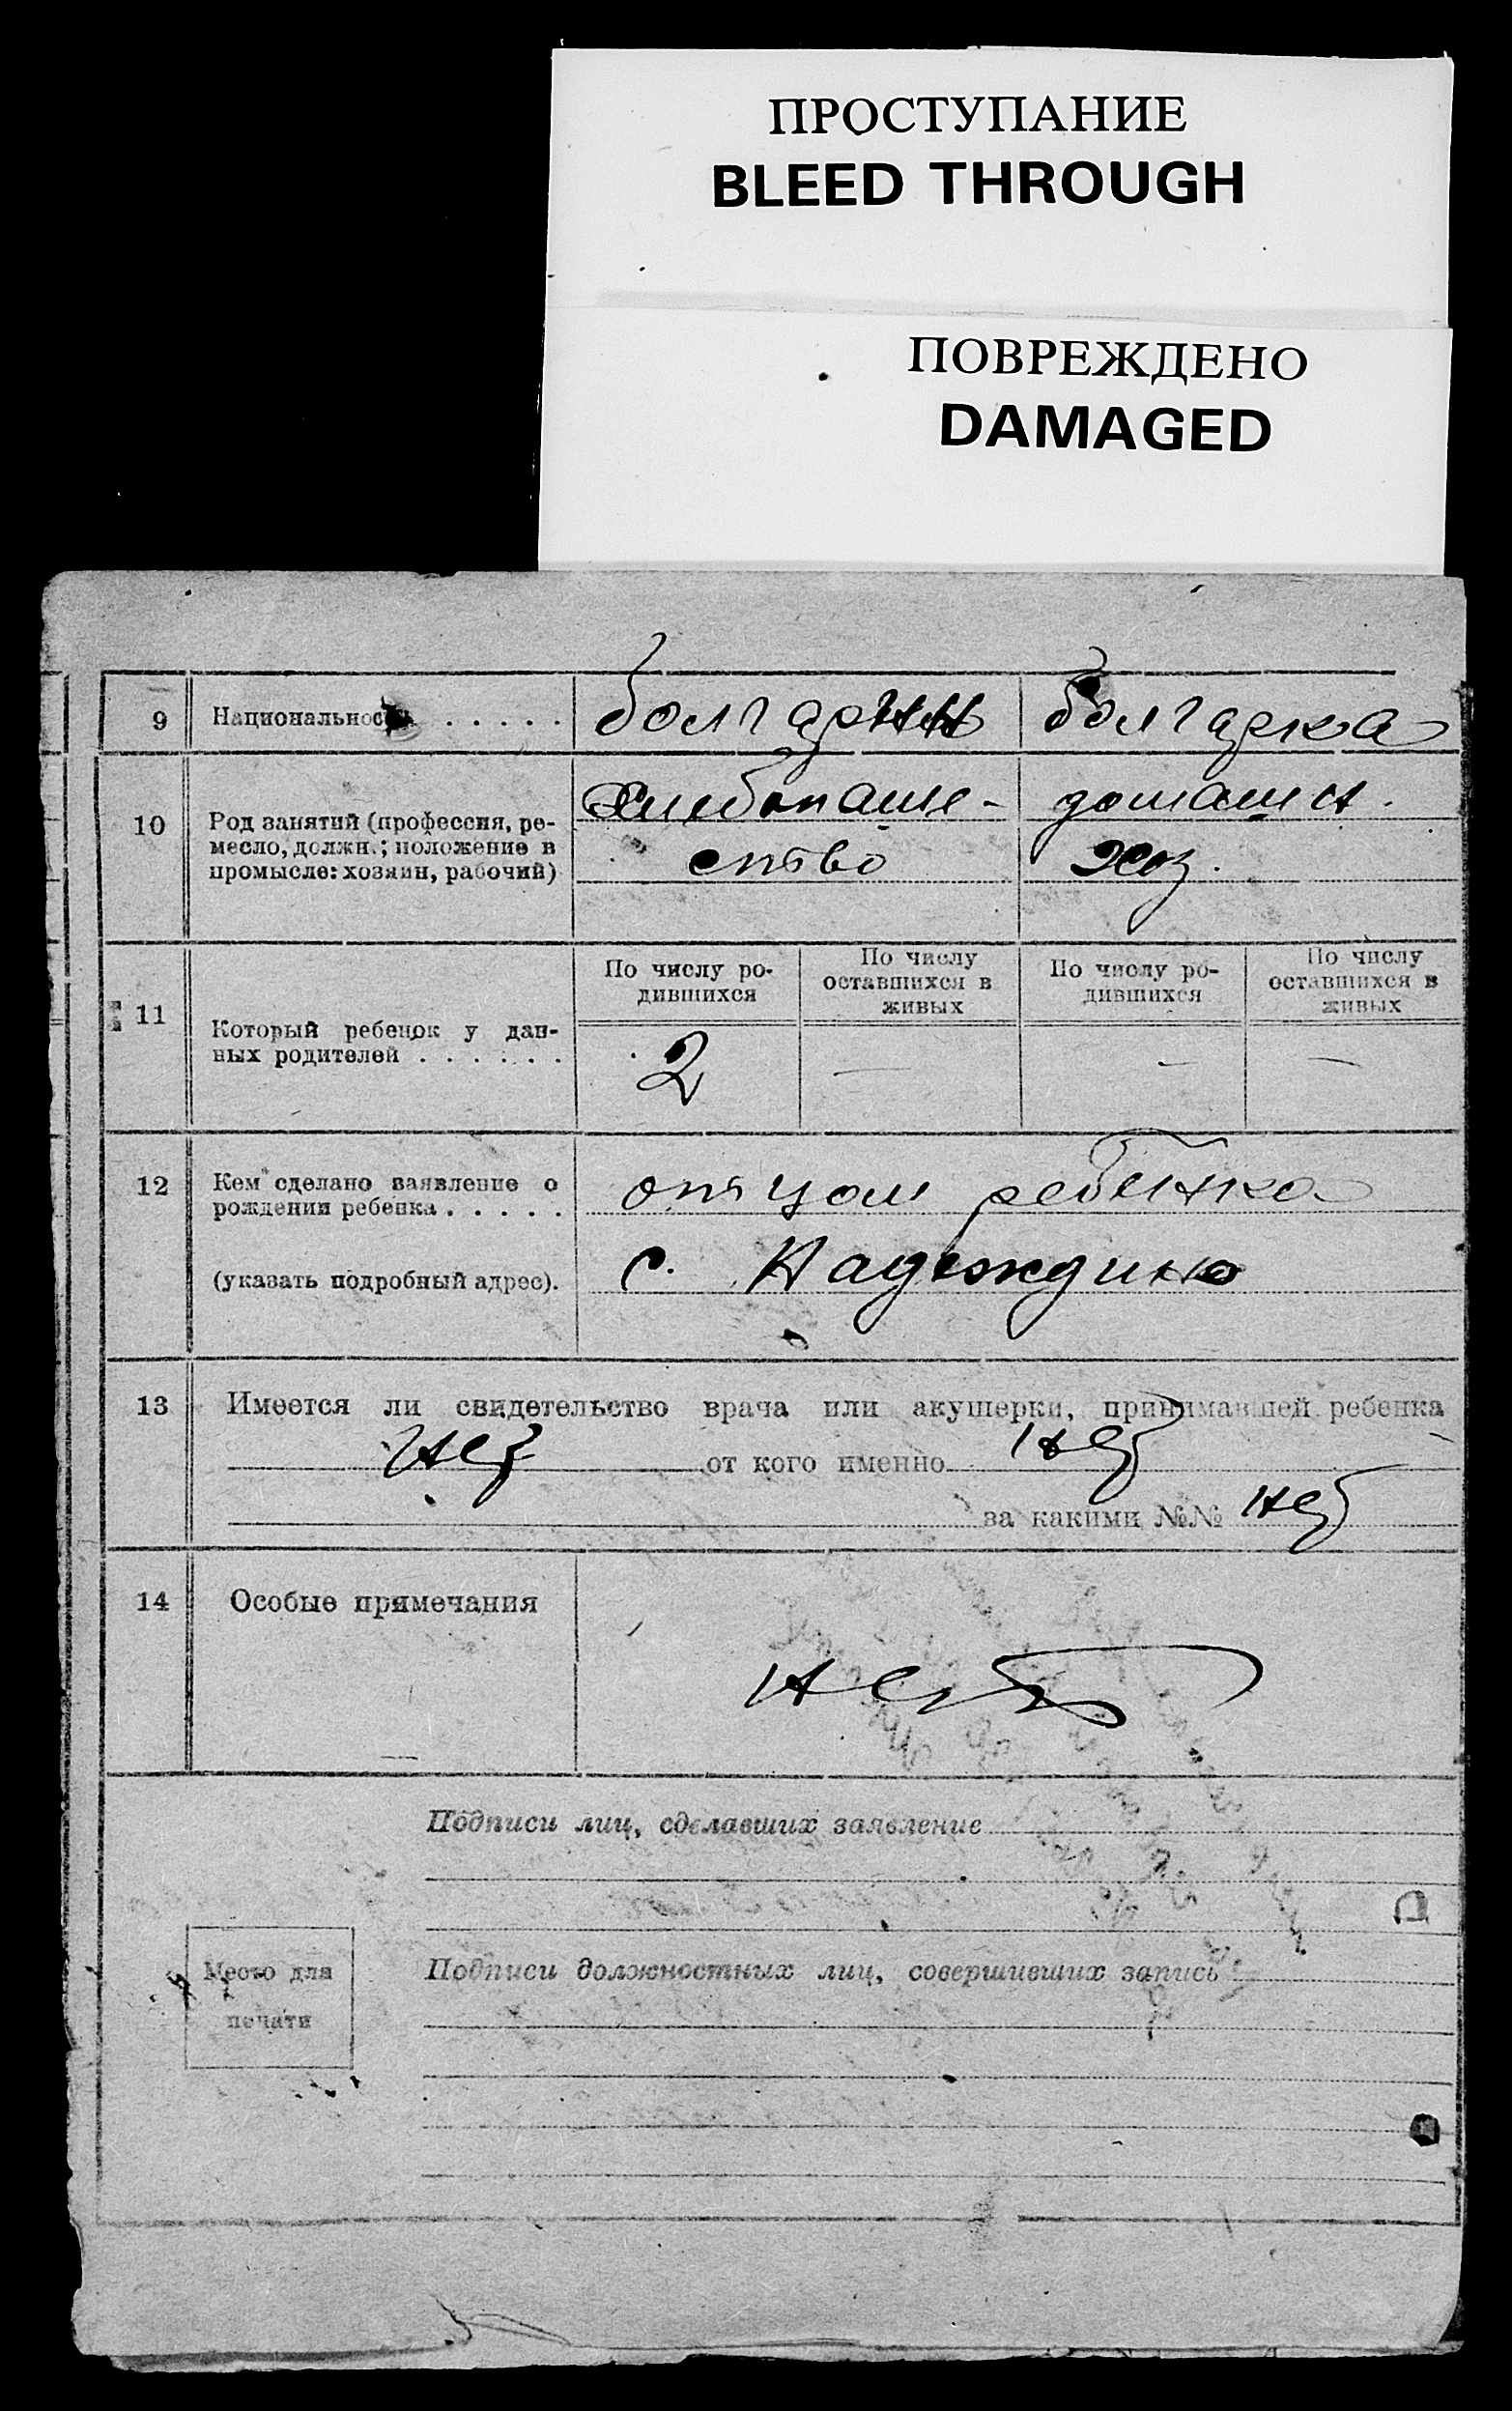 ПРОСТУПАНИЕ
BLEED THROUGH
ПОВРЕЖДЕНО
DAMAGED
9 Национальность . . . . . болгарин болгарка
10 Род занятий (профессия, ре-
месло, должн.; положение в
промысле: хозяин, рабочий)
Хлебопаше-
ство
домашн.
хоз.
11 Который ребенок у дан-
ных родителей . . . . . .
По числу ро-
дившихся
По числу
оставшихся в
живых
По числу ро-
дившихся
По числу
оставшихся в
живых
2 — — —
12 Кем сделано заявление о
рождении ребенка . . . . .
(указать подробный адрес).
отцом ребенка
с. Надеждино
13 Имеется ли свидетельство врача или акушерки, принимавшей ребенка
нет от кого именно нет
за какими №№ нет
14 Особые примечания
нет
Подписи лиц, сделавших заявление
Место для
печати
Подписи должностных лиц, совершивших запись